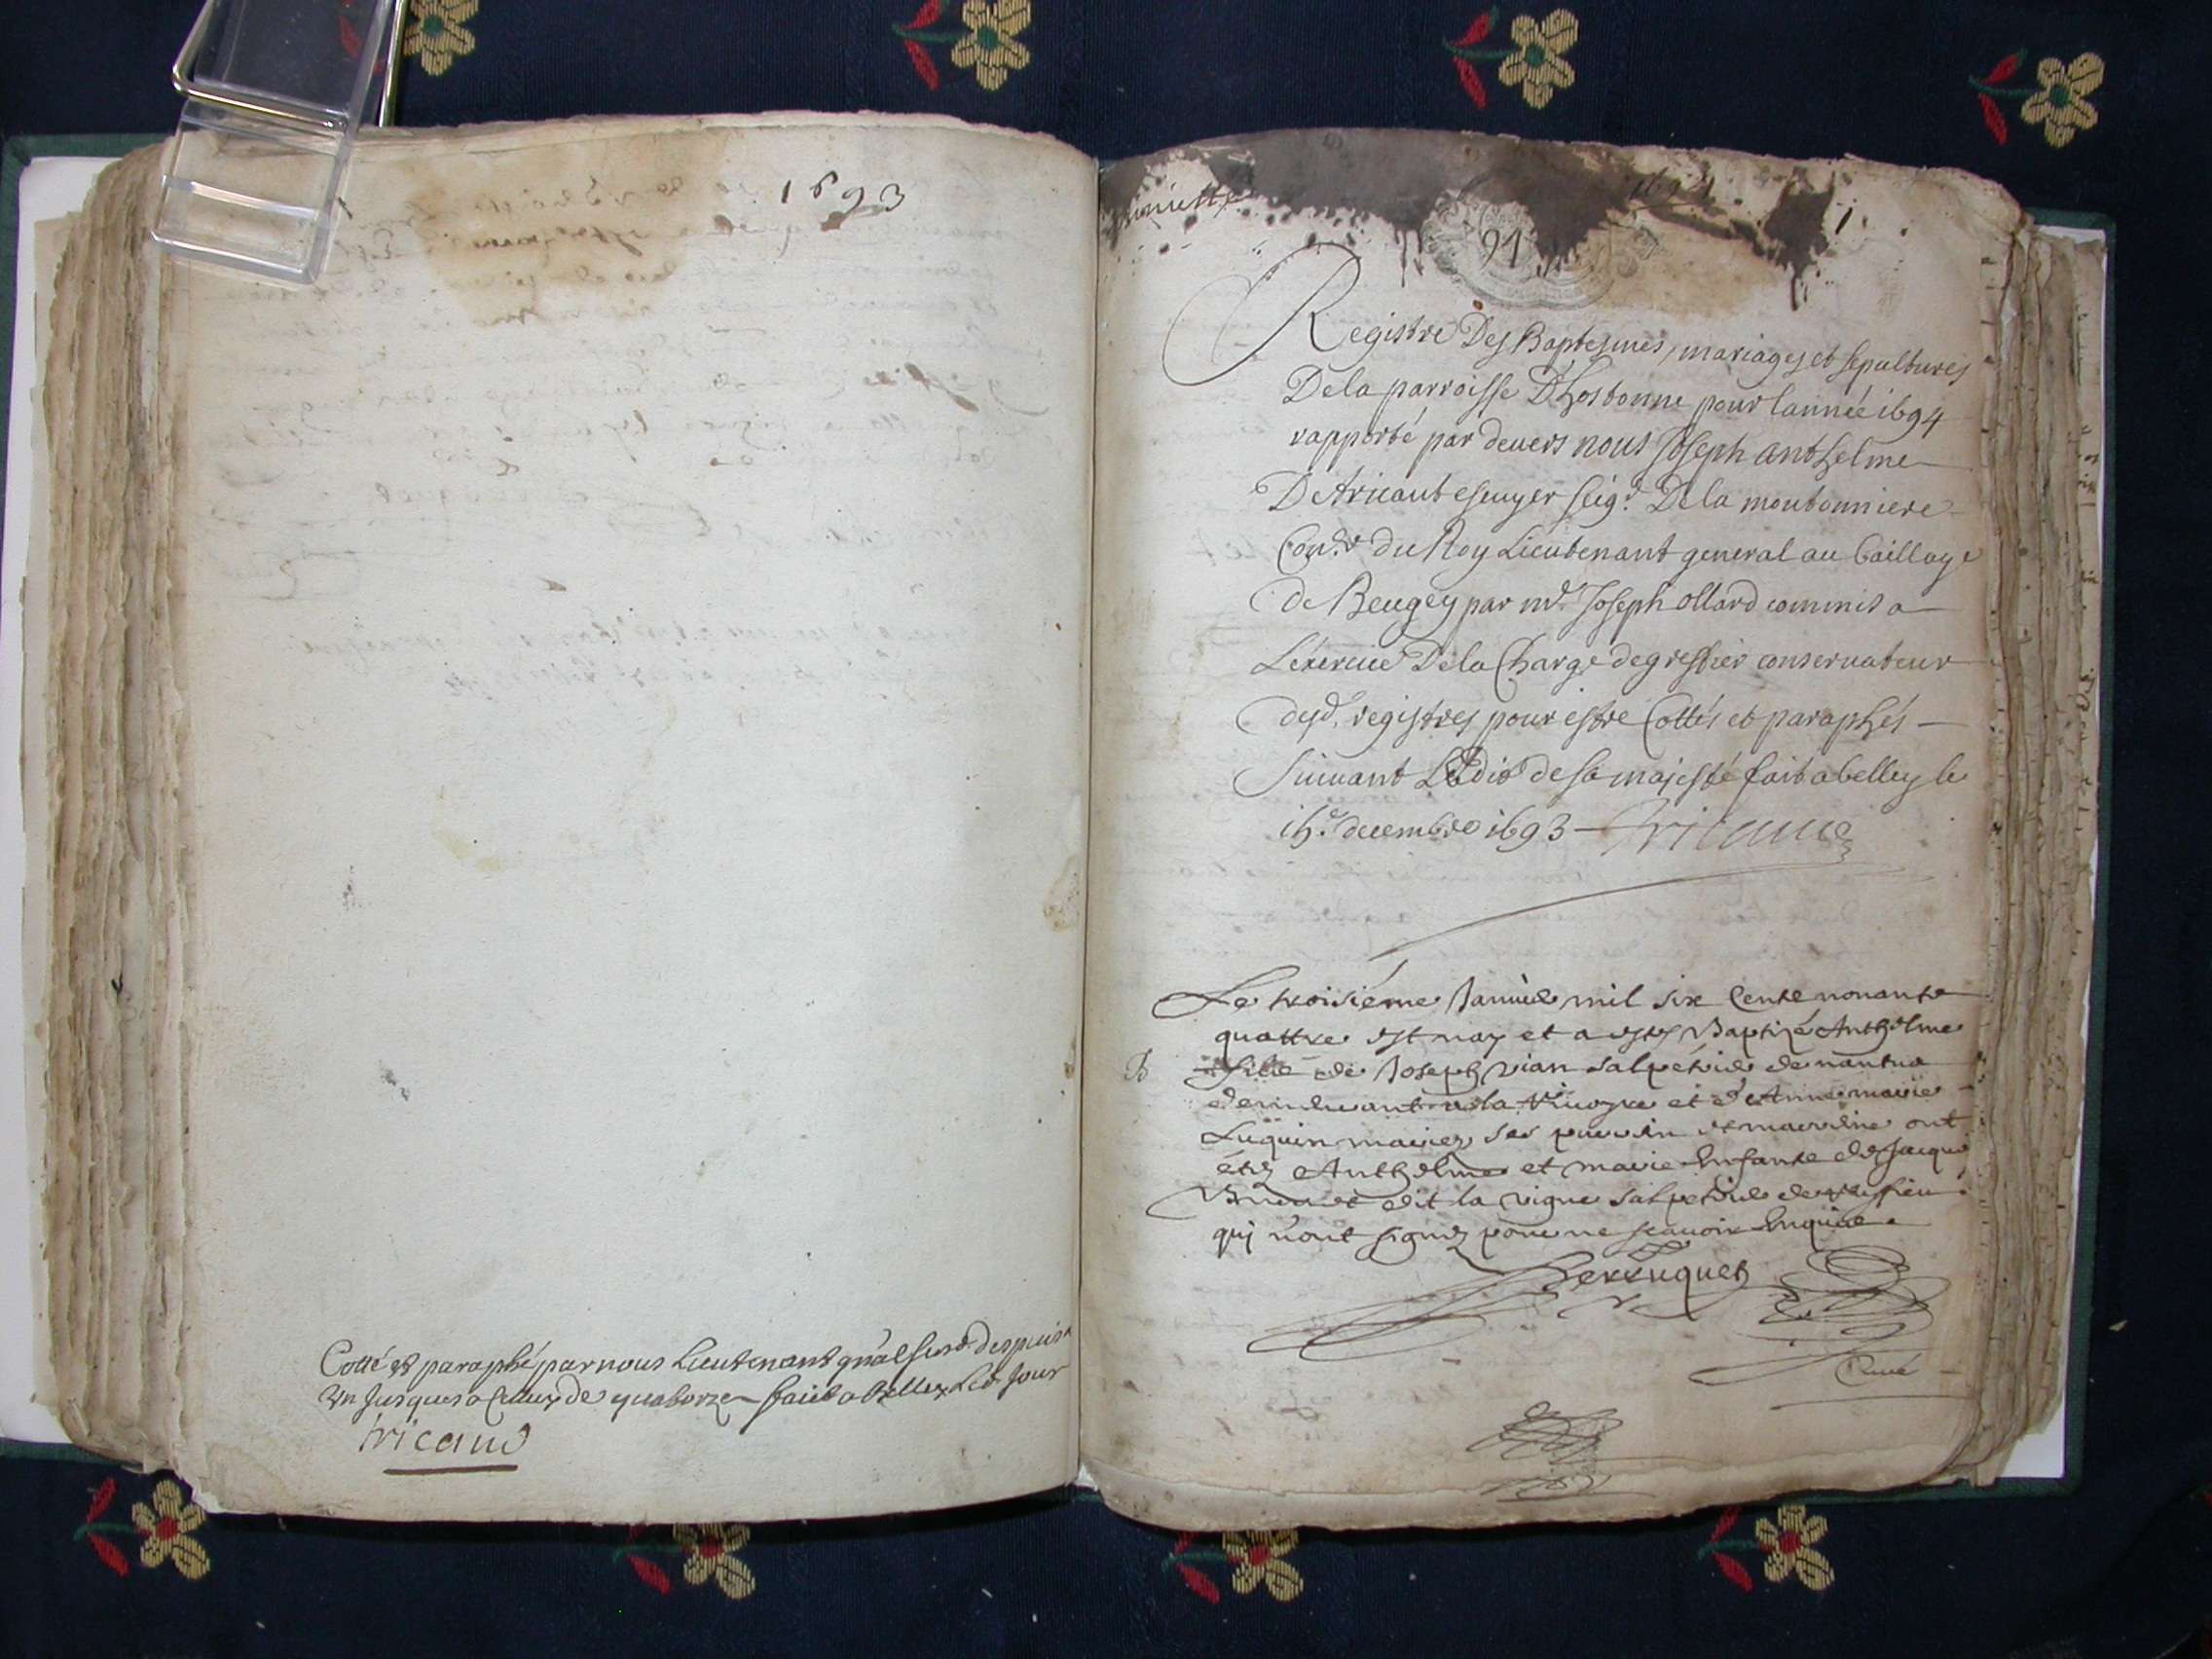 1693
Cotté et paraphé par nous Lieutenant gnal susd. despuis
un Jusques a Celluy de quatorze faict a Belley Led. Jour
tricaud
1694
91
Registre Des Baptesmes, mariages et sepultures
De la parroisse D'hostonne pour lannée 1694
rapporté par devers nous Joseph anthelme
De tricaut escuyer seigr. De la
Conser du Roy Lieutenant general au bailliage
de Beugey par me. Joseph ollard commis a
L'exercice De la Charge de greffier conservateur
desd. registres pour estre Cottés et paraphés
suivant L'Edit de sa majesté fait a belley le
decembre 1693 tricaud
Le troisiéme Janvier mil six Cents nonante
quattre est nay et a estez Baptizé Anthelme
B
fils de Joseph vian salpetrier de nantua
demeurant a la et d'Anne marie
Luquin mariez ses parrein et marreine ont
étéz Anthelme et marie Enfants de Jacque
dit la vigne salpetrier de
qui n'ont signéz pour ne scavoir Enquis.
Perruquet
Curé